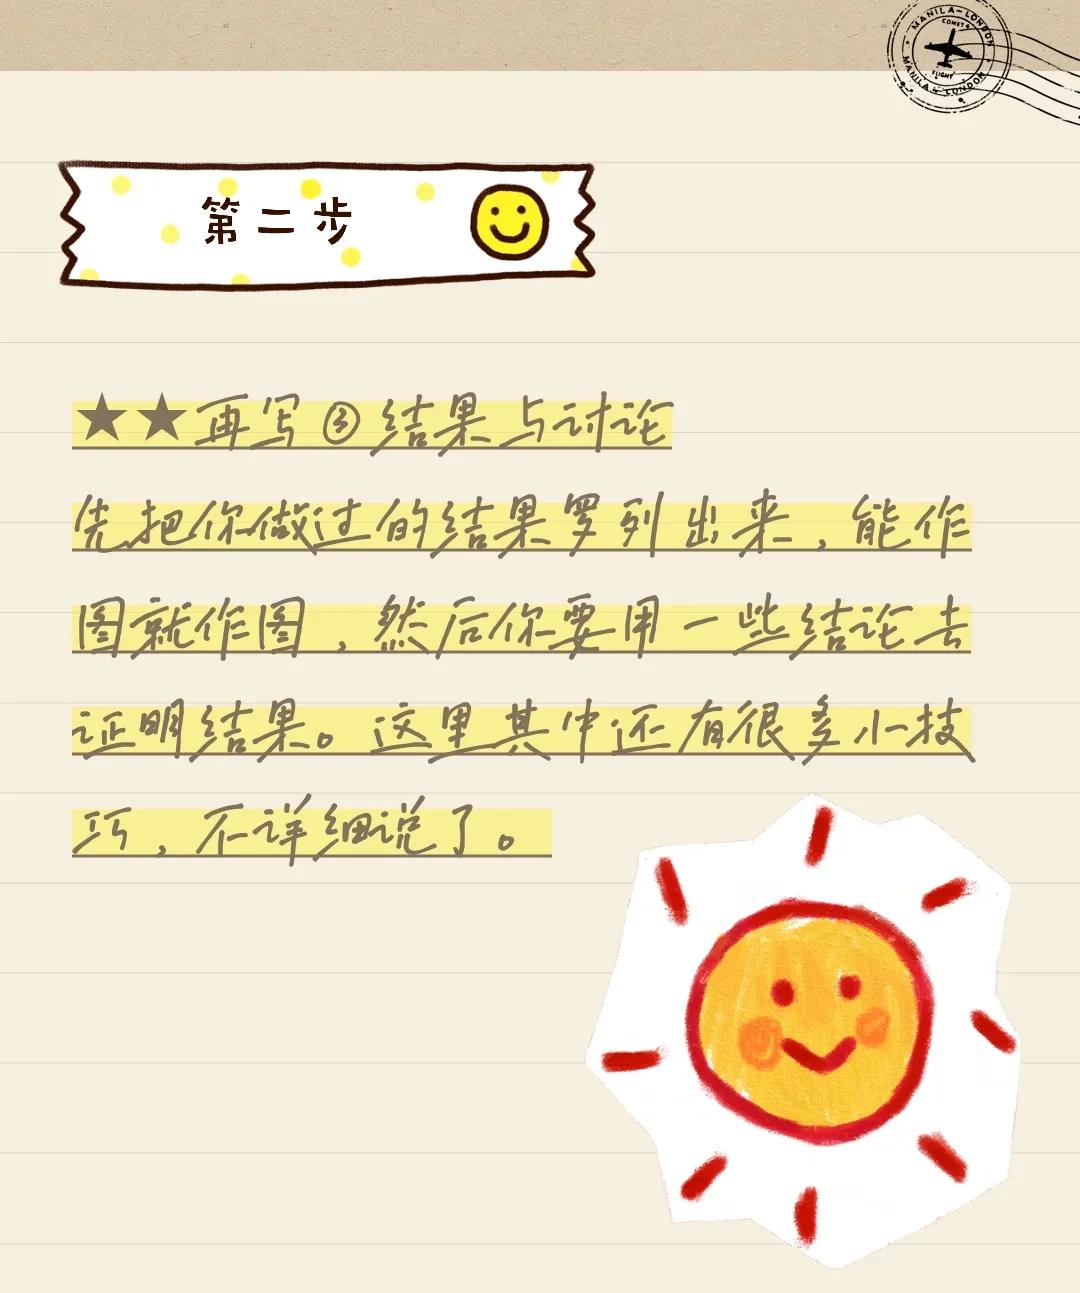 MANILA-LONDON
COMET 4
FLIGHT
MANILA-LONDON
第二步
★★再写③结果与讨论
先把你做过的结果罗列出来，能作
图就作图，然后你要用一些结论去
证明结果。这里其中还有很多小技
巧，不详细说了。